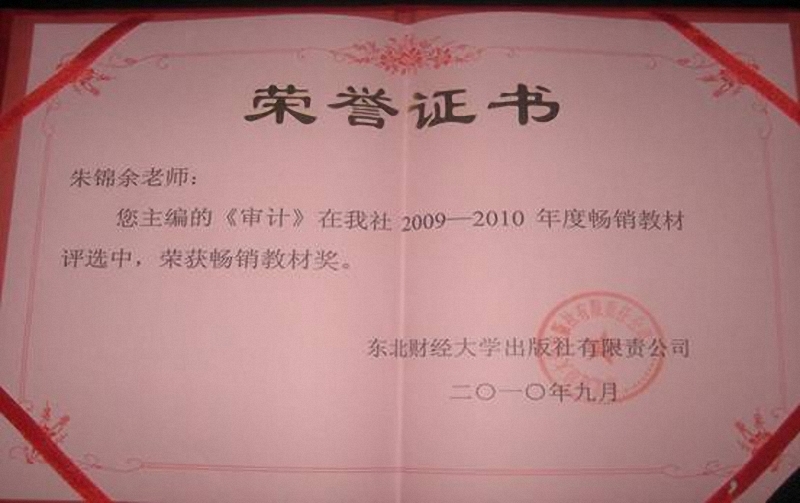 荣誉证书
朱锦余老师：
您主编的《审计》在我社2009—2010年度畅销教材
评选中，荣获畅销教材奖。
东北财经大学出版社有限责任公司
二〇一〇年九月